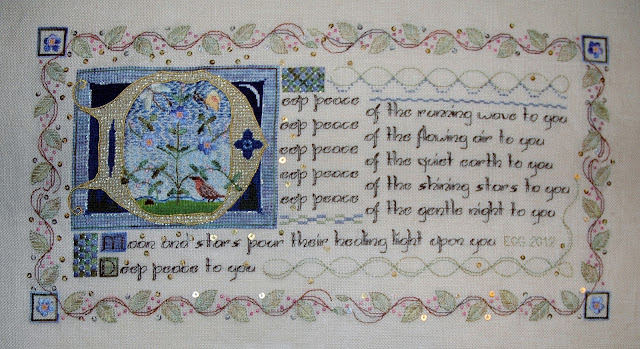 Deep peace of the running wave to you
eep peace of the flowing air to you
eep peace of the quiet earth to you
eep peace of the shining stars to you
eep peace of the gentle night to you
Moon and stars pour their healing light upon you EGG 2012
Deep peace to you